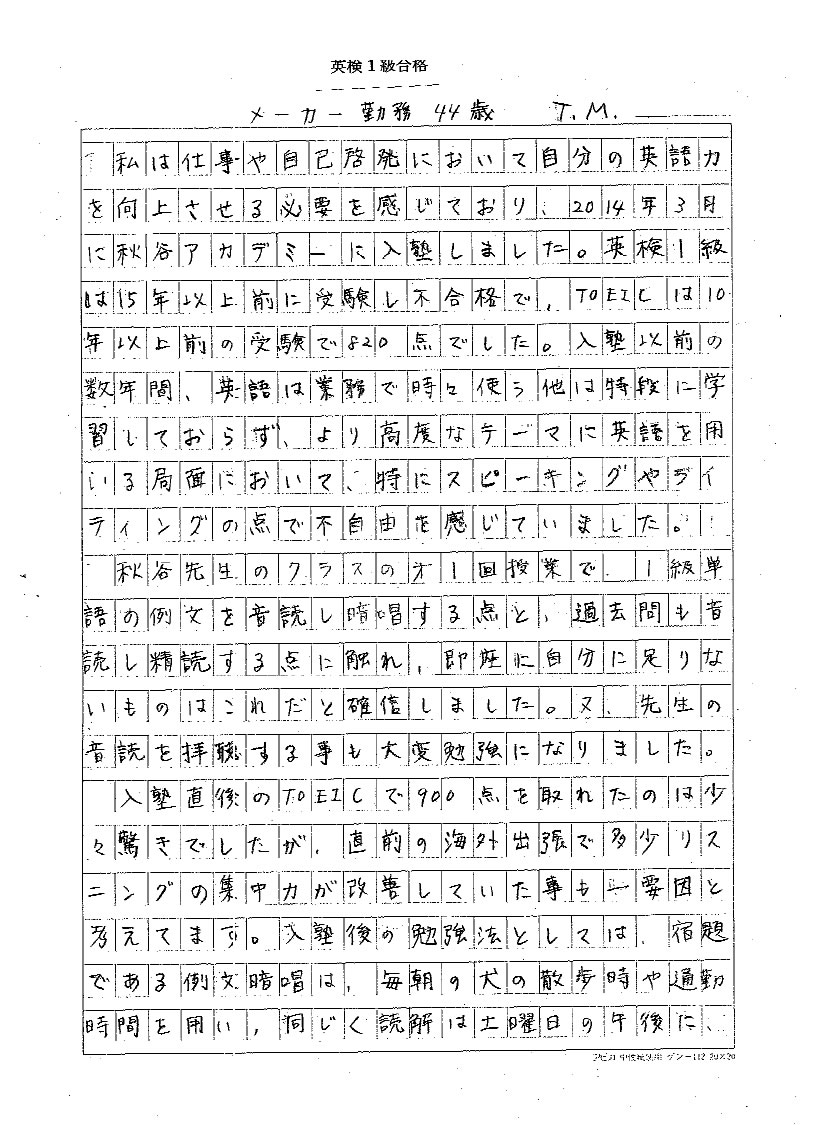 英検1級合格
メーカー勤務 44歳 T.M.
私は仕事や自己啓発において自分の英語力
を向上させる必要を感じており、2014年3月
に秋谷アカデミーに入塾しました。英検1級
は15年以上前に受験し不合格で、TOEICは10
年以上前の受験で820点でした。入塾以前の
数年間、英語は業務で時々使う他は特段に学
習しておらず、より高度なテーマに英語を用
いる局面において、特にスピーキングやライ
ティングの点で不自由を感じていました。
秋谷先生のクラスのオ1回授業で、1級単
語の例文を音読し暗唱する点と、過去問も音
読し精読する点に触れ、即座に自分に足りな
いものはこれだと確信しました。又、先生の
音読を拝聴する事も大変勉強になりました。
入塾直後のTOEICで900点を取れたのは少
々驚きでしたが、直前の海外出張で多少リス
ニングの集中力が改善していた事も一要因と
考えてます。入塾後の勉強法としては、宿題
である例文暗唱は、毎朝の犬の散歩時や通勤
時間を用い、同じく読解は土曜日の午後に、
20×20